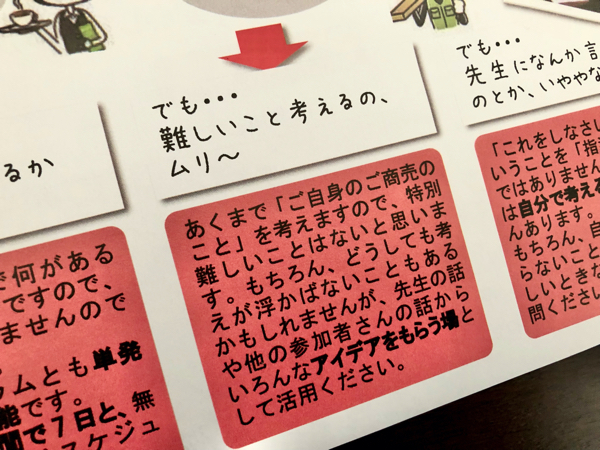 るか
で何がある
ですので、
ませんので
ラムとも単発
能です。
間で7日と、無
スケジュ
でも・・・
難しいこと考えるの、
ムリ～
あくまで「ご自身のご商売の
こと」を考えますので、特別
難しいことはないと思いま
す。もちろん、どうしても考
えが浮かばないこともある
かもしれませんが、先生の話
や他の参加者さんの話から
いろんなアイデアをもらう場と
して活用ください。
でも・・・
先生になんか言
のとか、いややな
「これをしなさい
いうことを「指
ではありません
は自分で考え
んあります。
もちろん、自
らないこと
しいときな
問ください